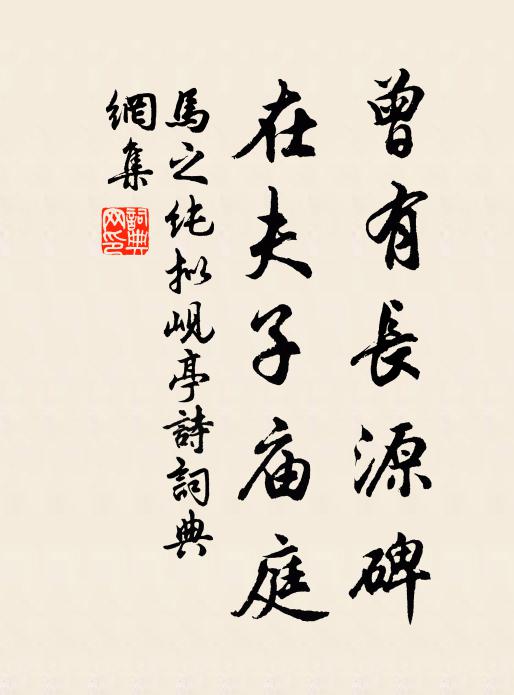 曾有長源碑
在夫子庙庭
馬之純拟峴亭詩詞典
網集
詞典網印